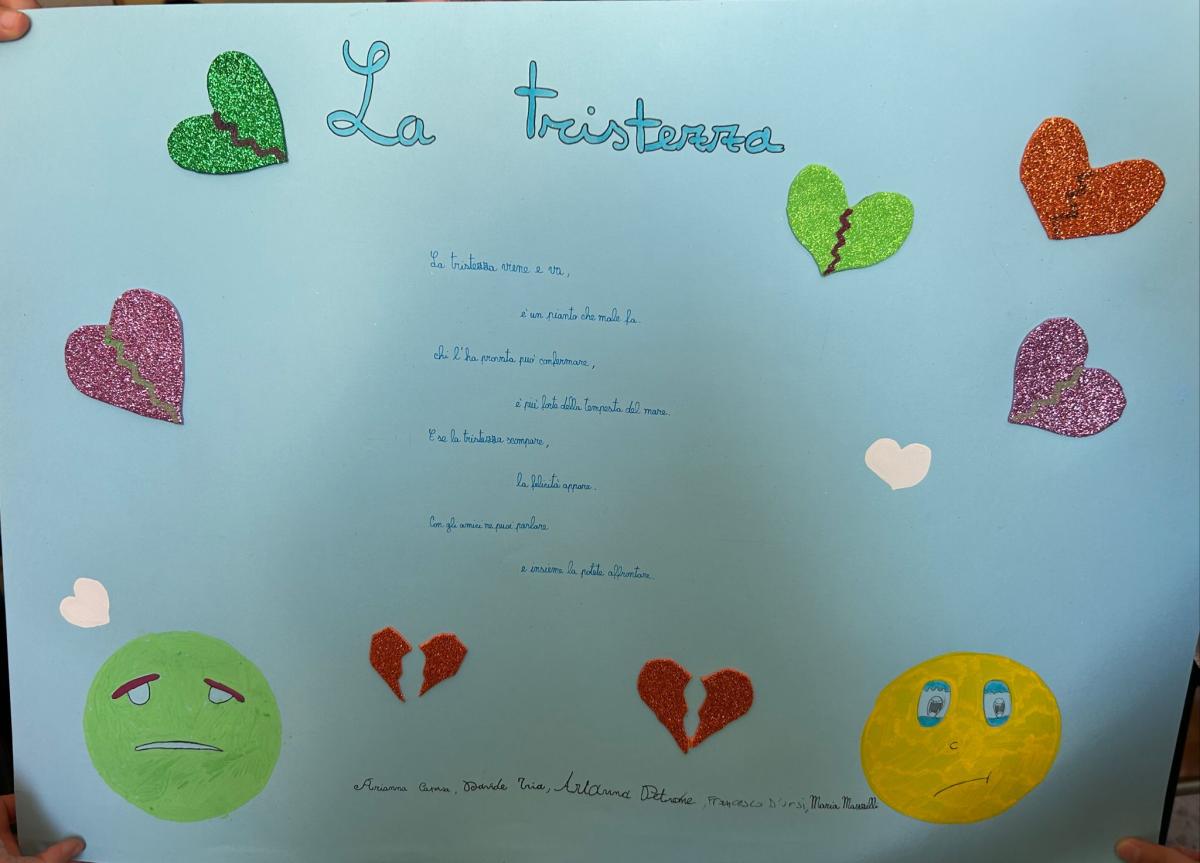 La tristezza
La tristezza viene e va,
è un pianto che male fa.
chi l'ha provata può confermare,
è più forte della tempesta del mare.
E se la tristezza scompare,
la felicità appare.
Con gli amici ne puoi parlare
e insieme la potete affrontare.
Arianna, Davide Tria, Arianna Petrone, Francesco D'ursi, Maria